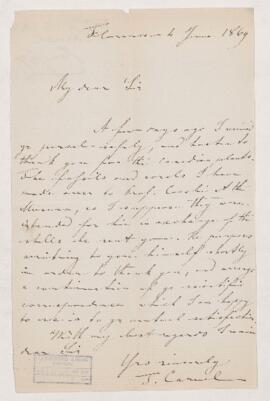 Florence 4 June 1869
My dear Sir
A few days ago I received
yr parcel safely, and hasten to
thank you for the Canadian plants.
The fossils and rocks I have
made over to Prof. Cocchi at the
Museum, as I suppose they were
intended for him in exchange of the
shells he sent you. He purposes
writing to you himself shortly
in order to thank you, and arrange
a continuation of yr scientific
correspondence which I am happy
to see is to yr mutual satisfaction.
With my best regards I remain
dear Sir
Yrs sincerely
T. Caruel